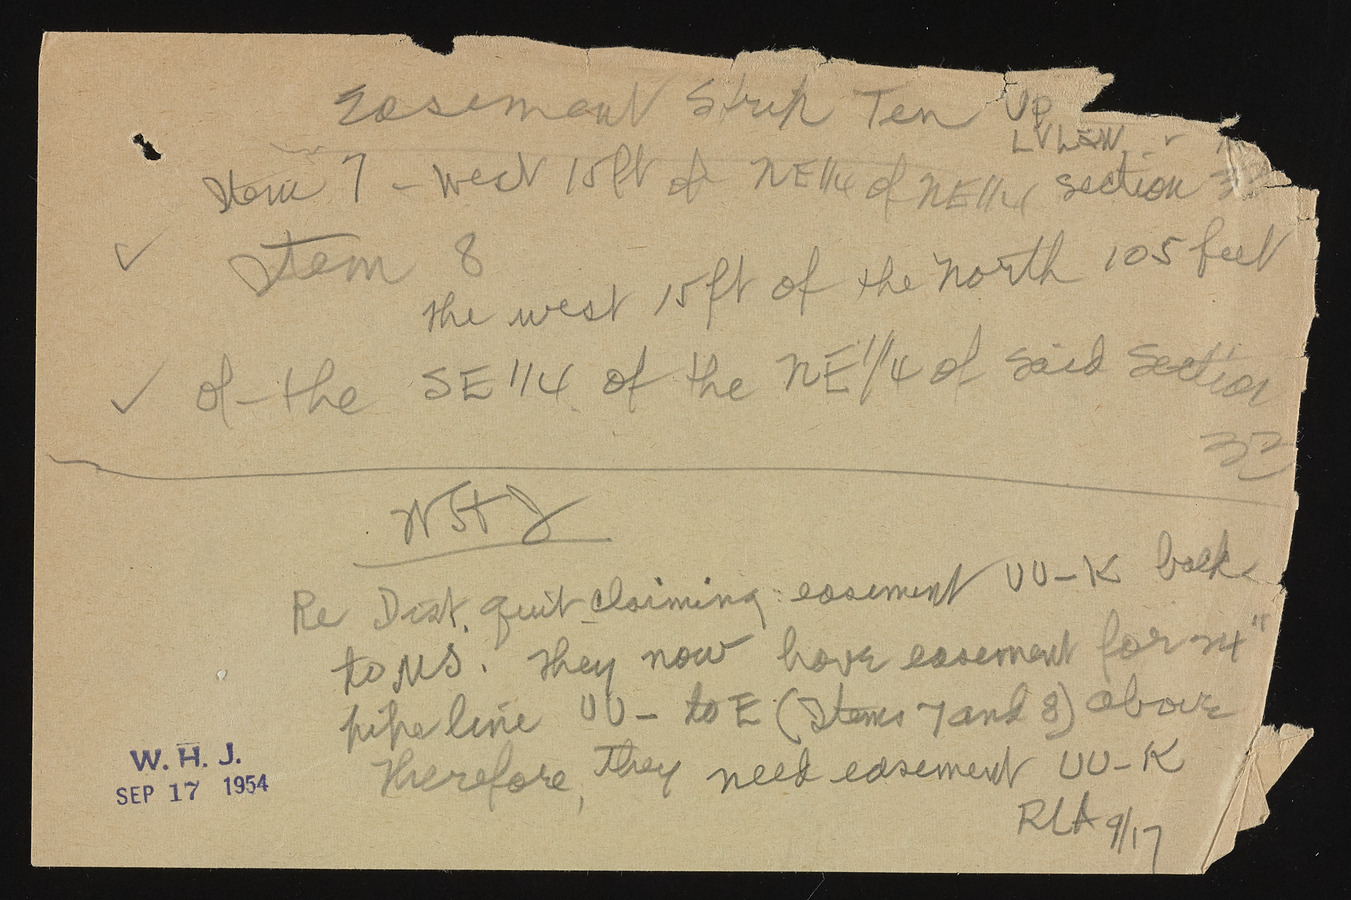 Easement Strip Ten Up
Item 7 - West 15ft of NE 1/4 of NE 1/4 section 32
Item 8
the west 15 ft of the North 105 feet
✓ of-the SE 1/4 of the NE 1/4 of said section
32
WHJ
Re Dist. quit-claiming easement UU-K back
to NS. They now have easement for 24"
pipe line UU- to E (Items 7 and 8) above
Therefore, they need easement UU-K
RLA 9/17
W. H. J.
SEP 17 1954